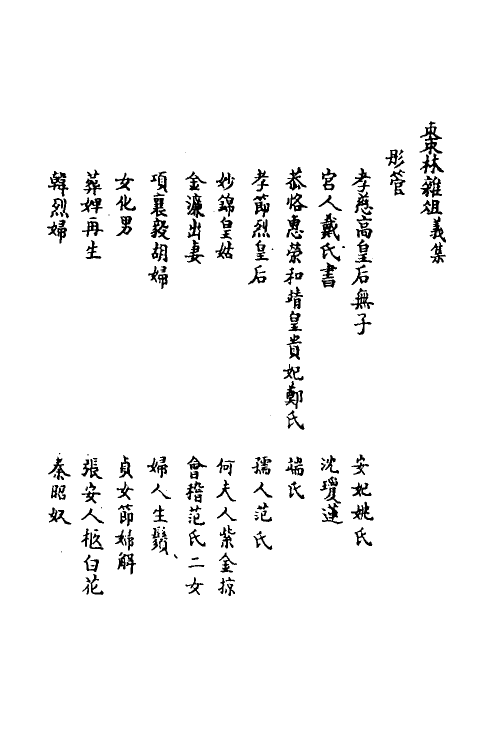 棗林雜俎義集
彤管
孝慈高皇后無子
安妃姚氏
宮人戴氏書
沈瓊蓮
恭恪惠榮和靖皇貴妃鄭氏
端氏
孝節烈皇后
孺人范氏
妙錦皇姑
何夫人紫金掠
金濂出妻
會稽范氏二女
項襄毅胡婦
婦人生鬚
女化男
貞女節婦解
葬婢再生
張安人柩白花
韓烈婦
秦昭奴